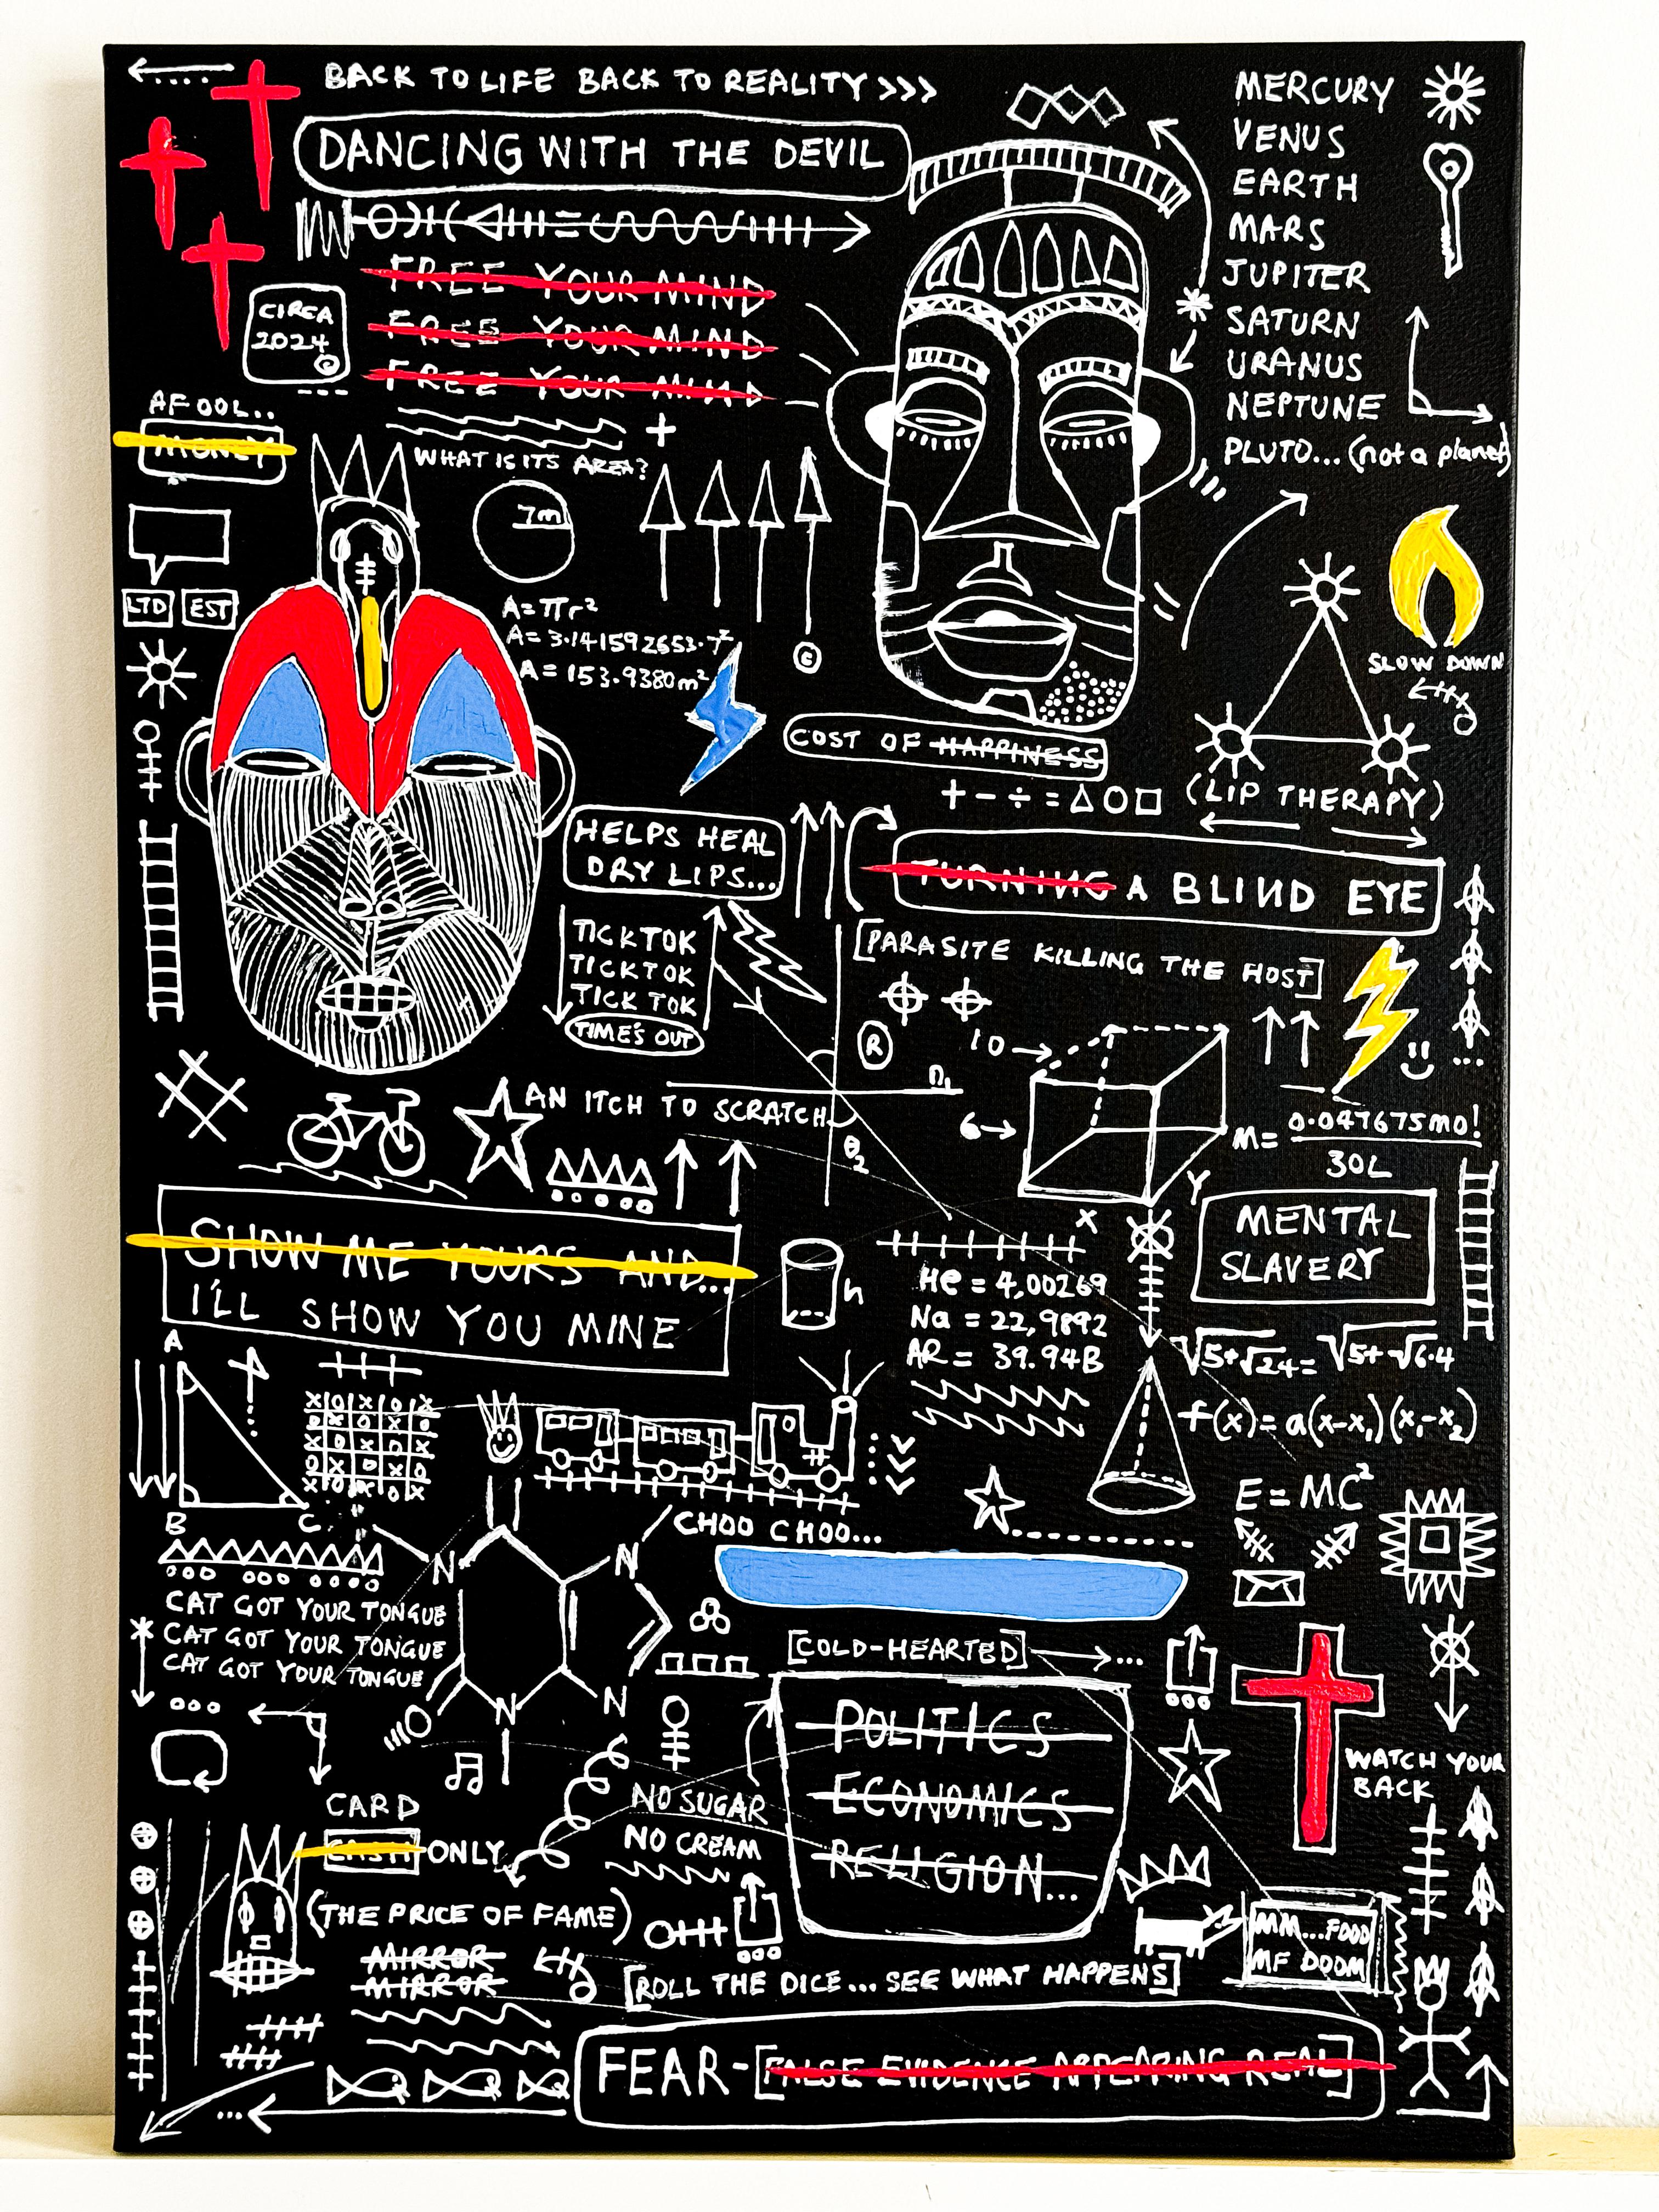 BACK TO LIFE BACK TO REALITY >>>
DANCING WITH THE DEVIL
FREE YOUR MIND
FREE YOUR MIND
FREE YOUR MIND
CIRCA
2024
MERCURY
VENUS
EARTH
MARS
JUPITER
SATURN
URANUS
NEPTUNE
PLUTO... (not a planet)
A FOOL..
MONEY
WHAT IS ITS AREA?
7m
LTD
EST
A=πr²
A=3.141592653.7²
A=153.9380m²
©
SLOW DOWN
COST OF HAPPINESS
+ - ÷ = △ ○ □
(LIP THERAPY)
HELPS HEAL
DRY LIPS...
TURNING A BLIND EYE
TICK TOK
TICK TOK
TICK TOK
TIME'S OUT
[PARASITE KILLING THE HOST]
®
10
6
n₁
θ₂
AN ITCH TO SCRATCH
M= 0.047675mo!
30L
X
Y
MENTAL
SLAVERY
SHOW ME YOURS AND...
I'LL SHOW YOU MINE
h
He = 4,00269
Na = 22,9892
AR = 39.94B
√5+√24= √5+√6.4
f(x)=a(x-x₁)(x₁-x₂)
A
B
C
X O X O X
CHOO CHOO...
E=MC²
N
N
N
N
O
CAT GOT YOUR TONGUE
CAT GOT YOUR TONGUE
CAT GOT YOUR TONGUE
[COLD-HEARTED]
POLITICS
ECONOMICS
RELIGION...
WATCH YOUR
BACK
CARD
CASH ONLY
NO SUGAR
NO CREAM
(THE PRICE OF FAME)
MIRROR
MIRROR
[ROLL THE DICE... SEE WHAT HAPPENS]
MM...FOOD
MF DOOM
FEAR-[FALSE EVIDENCE APPEARING REAL]